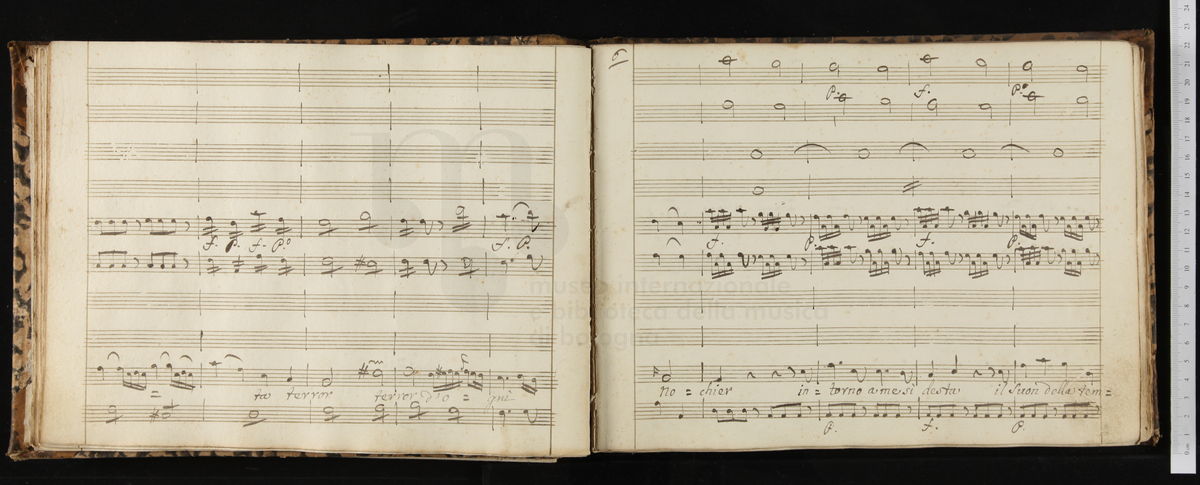 f. p. f. p.o
f. p.
ta terror terror d'o = gni
6
p. f. p.o
f. p. f. p.
no = chier in = torno a me si desta il suon della tem =
p. f. p.
museo internazionale
e biblioteca della musica
di bologna